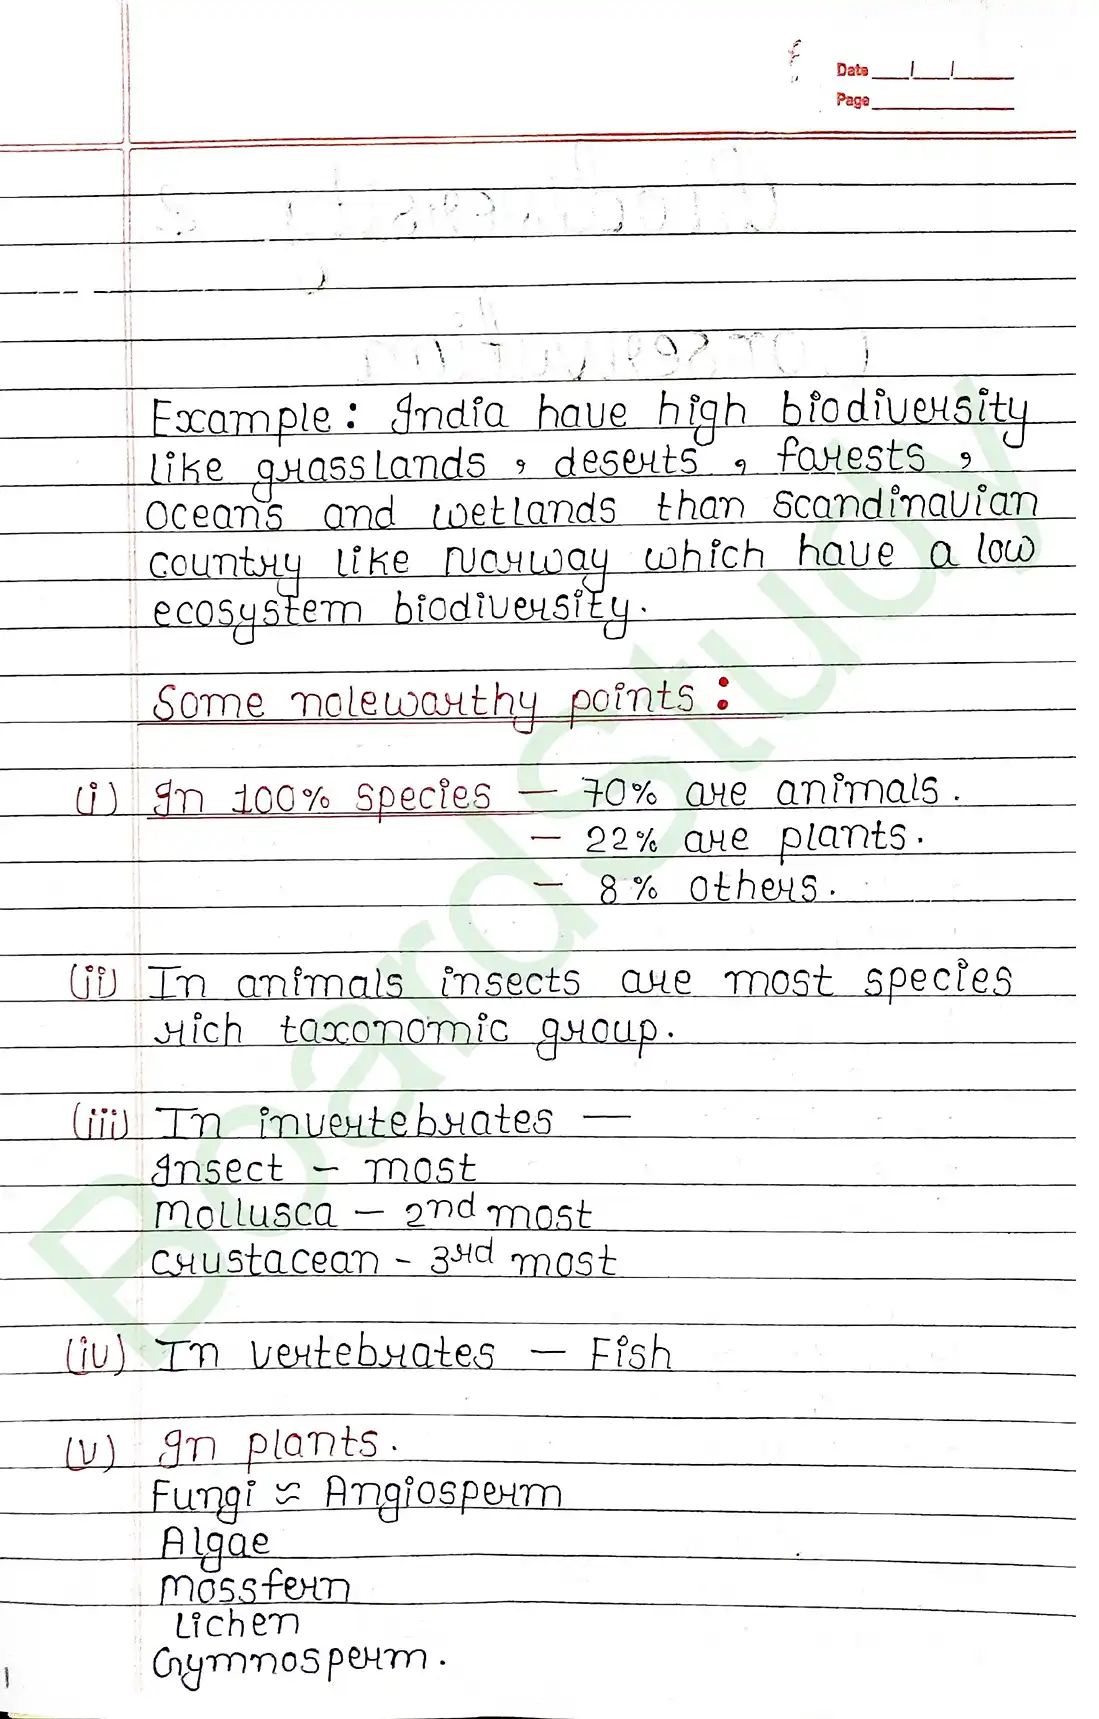 Date
Page
Example: India have high biodiversity
like grasslands, deserts, forests,
oceans and wetlands than Scandinavian
country like Norway which have a low
ecosystem biodiversity.
Some noteworthy points:
(i) In 100% species — 70% are animals.
— 22% are plants.
— 8% others.
(ii) In animals insects are most species
rich taxonomic group.
(iii) In invertebrates —
Insect - most
Mollusca - 2nd most
Crustacean - 3rd most
(iv) In vertebrates — Fish
(v) In plants.
Fungi ≈ Angiosperm
Algae
Mossfern
Lichen
Gymnosperm.
BoardStudy